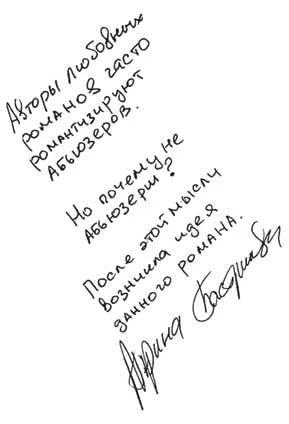 Авторы любовных
романов часто
романтизируют
абьюзеров.
Но почему не
абьюзерш?
После этой мысли
возникла идея
данного романа.
Ирина